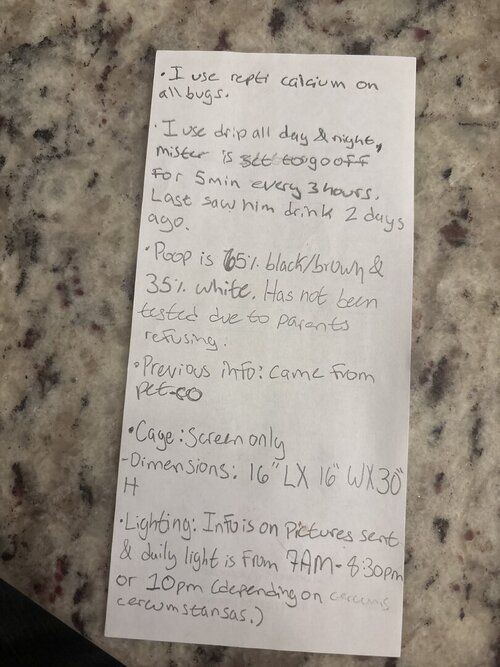 • I use repti calcium on
all bugs.
• I use drip all day & night,
mister is set to go off
for 5min every 3 hours.
Last saw him drink 2 days
ago.
• Poop is 65% black/brown &
35% white. Has not been
tested due to parents
refusing.
• Previous info: came from
pet-co
• Cage: Screen only
-Dimensions: 16" LX 16" WX30"
H
• Lighting: Info is on pictures sent
& daily light is from 7AM-8:30pm
or 10pm (depending on cercums
cercumstansas.)